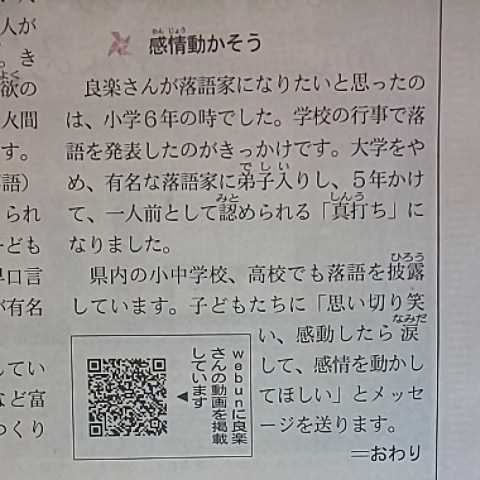 感情動かそう
かんじょう
良楽さんが落語家になりたいと思ったの
は、小学6年の時でした。学校の行事で落
語を発表したのがきっかけです。大学をや
でしい
め、有名な落語家に弟子入りし、5年かけ
みと
しんう
て、一人前として認められる「真打ち」に
なりました。
ひろう
県内の小中学校、高校でも落語を披露
しています。子どもたちに「思い切り笑
なみだ
い、感動したら涙
して、感情を動かし
てほしい」とメッセ
ージを送ります。
=おわり
webunに良楽
さんの動画を掲載
しています
▲
人が
。き
よく
欲の
火間
す。
語)
られ
ども
口言
有名
してい
など富
つくり